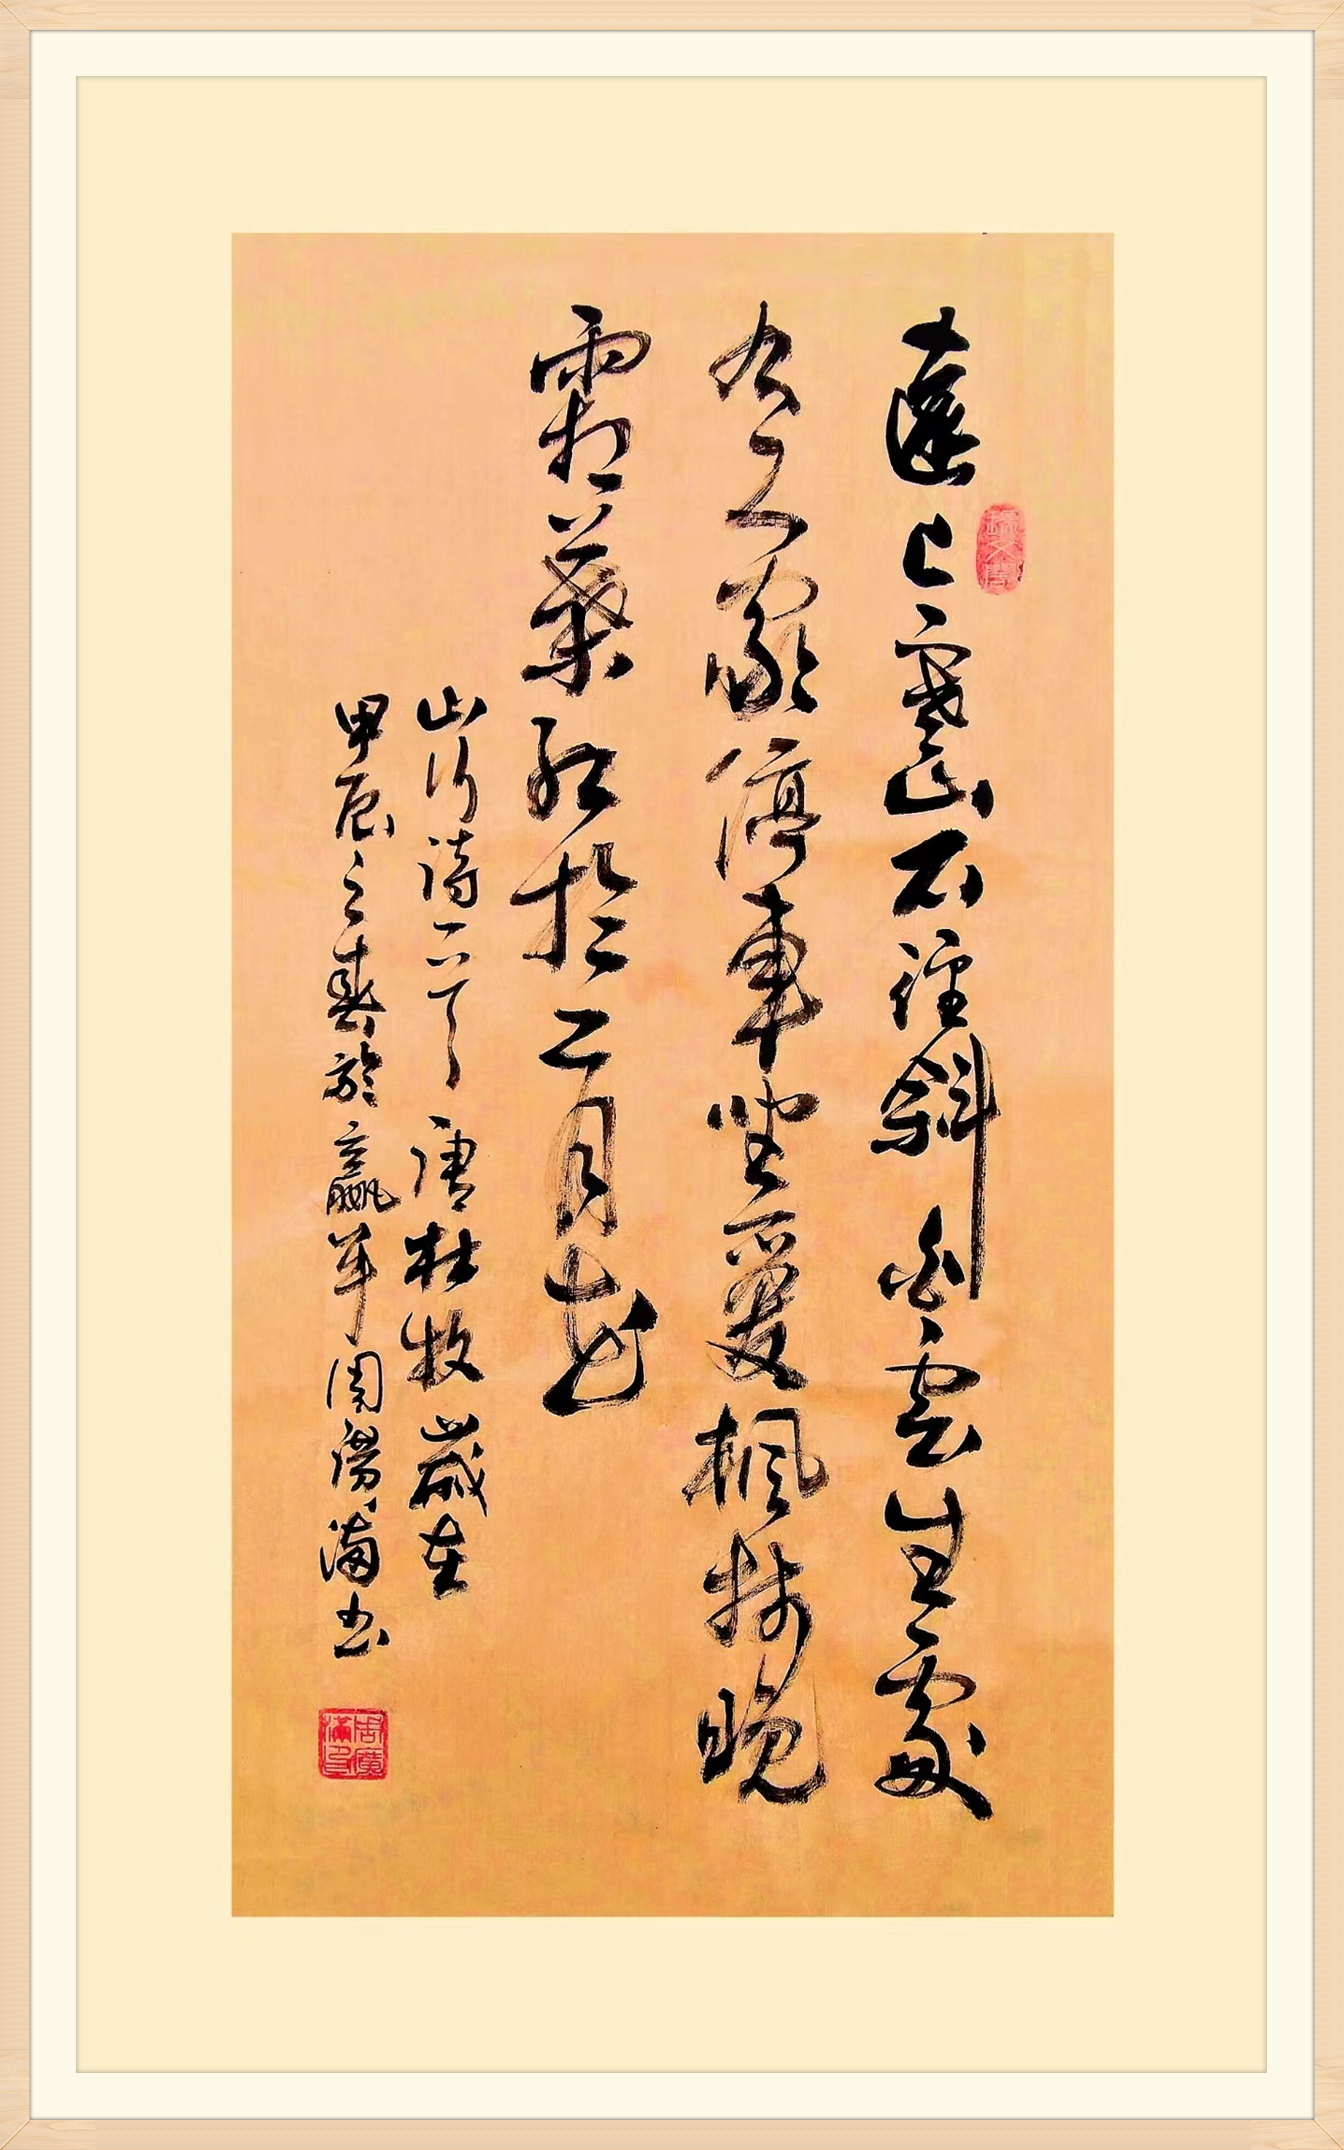 遠上寒山石徑斜白雲生處
有人家停車坐愛楓林晚
霜葉紅於二月花
山行詩一首唐杜牧歲在
甲辰之春於周滿书
周廣滿印